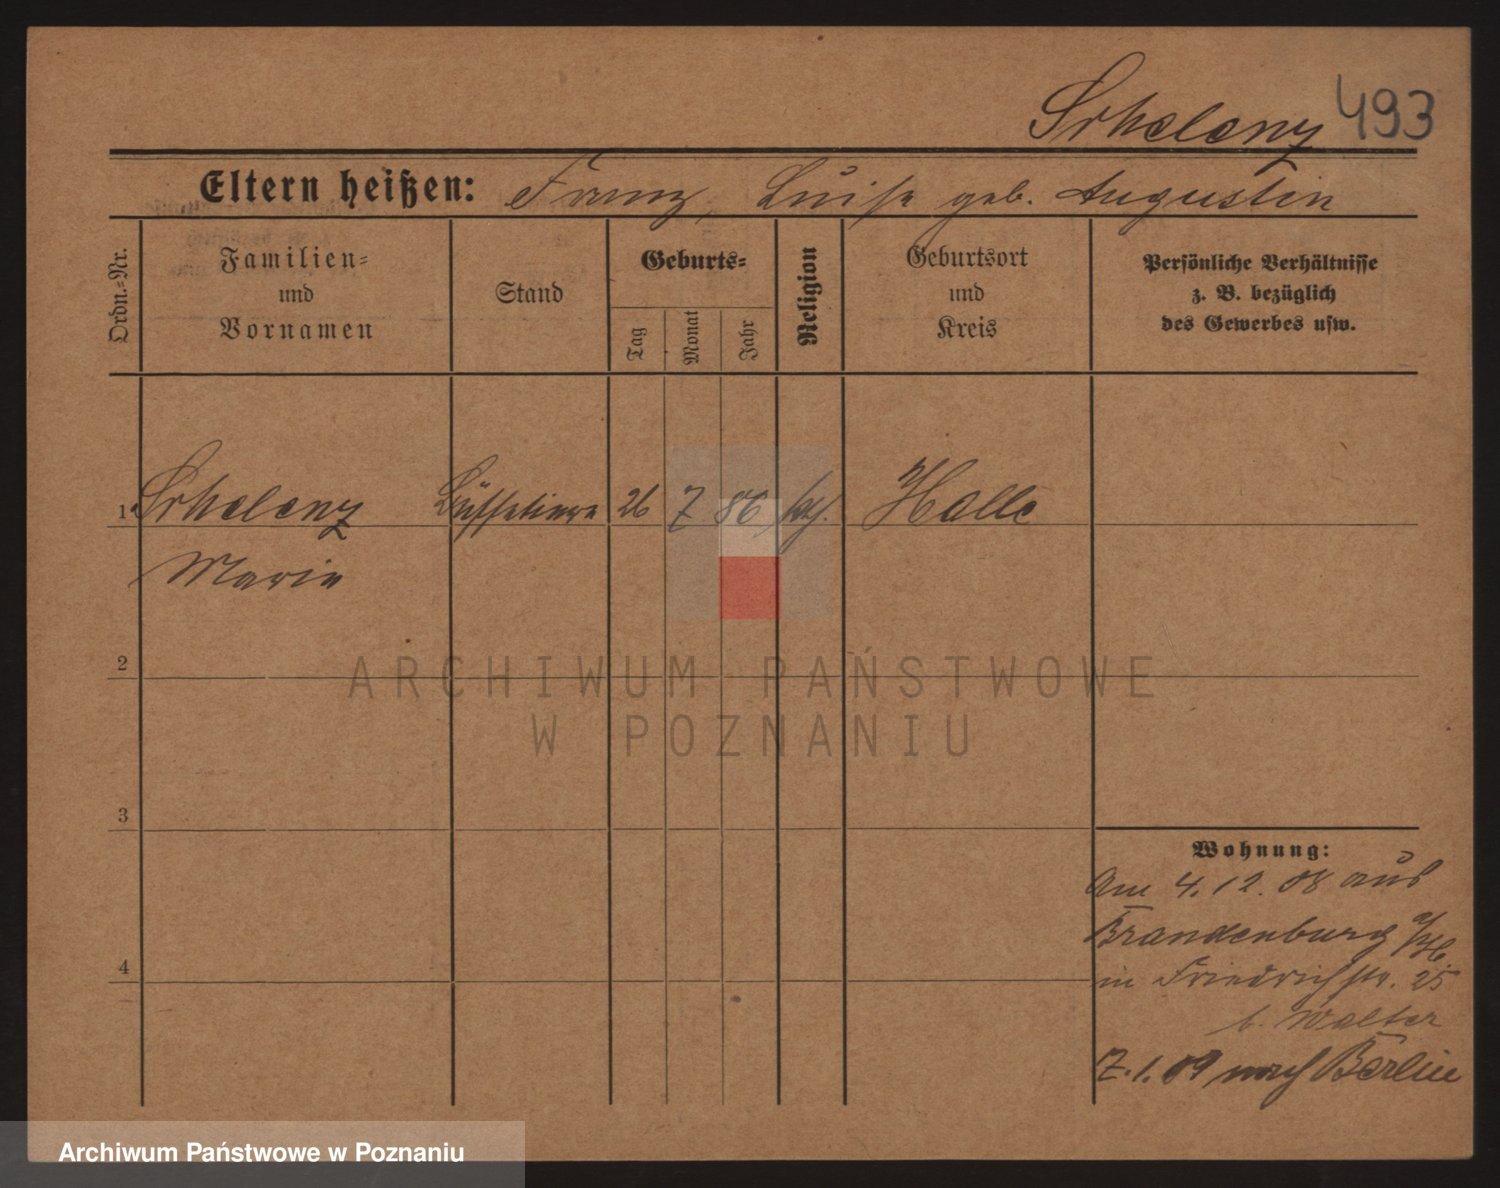 Srhelenz 493
Eltern heißen: Franz, Luise geb. Augustin
Ordn.-Nr.
Familien-
und
Vornamen
Stand
Geburts-
Tag
Monat
Jahr
Religion
Geburtsort
und
Kreis
Persönliche Verhältnisse
z. B. bezüglich
des Gewerbes usw.
1 Srhelenz Büffetiere 26 7 86 kath. Halle
Marie
2
ARCHIWUM PAŃSTWOWE
W POZNANIU
3
Wohnung:
Am 4.12.08 aus
Brandenburg a/H.
4
in Friedrichstr. 25
b. Walter
7.1.09 nach Berlin
Archiwum Państwowe w Poznaniu